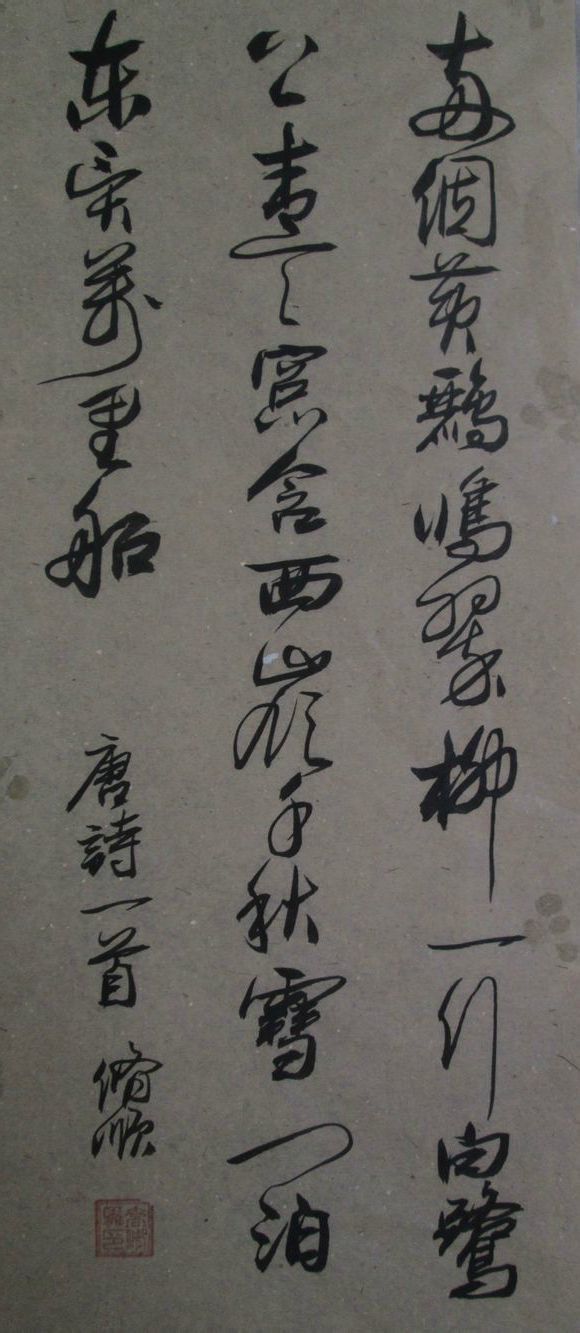 兩個黃鸝鳴翠柳一行白鷺
上青天窗含西嶺千秋雪門泊
东吳萬里船
唐詩一首 脩順